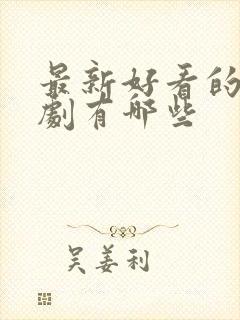 最新好看的
劇有哪些
吴姜利